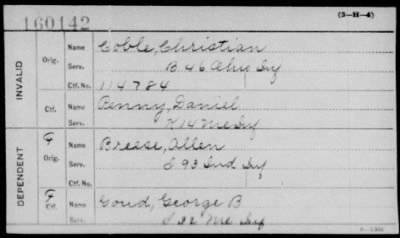 160142
(3-H-4)
INVALID
Orig.
Name Coble, Christian
Serv. B. 46 Ohio Inf
Ctf. No. 114784
Ctf.
Name Penny, Daniel
Serv. K 14 Me Inf
DEPENDENT
F
Orig.
Name Breese, Allen
Serv. I 93 Ind Inf
Ctf. No.
F
Ctf.
Name Goud, George B
Serv. I 32 Me Inf